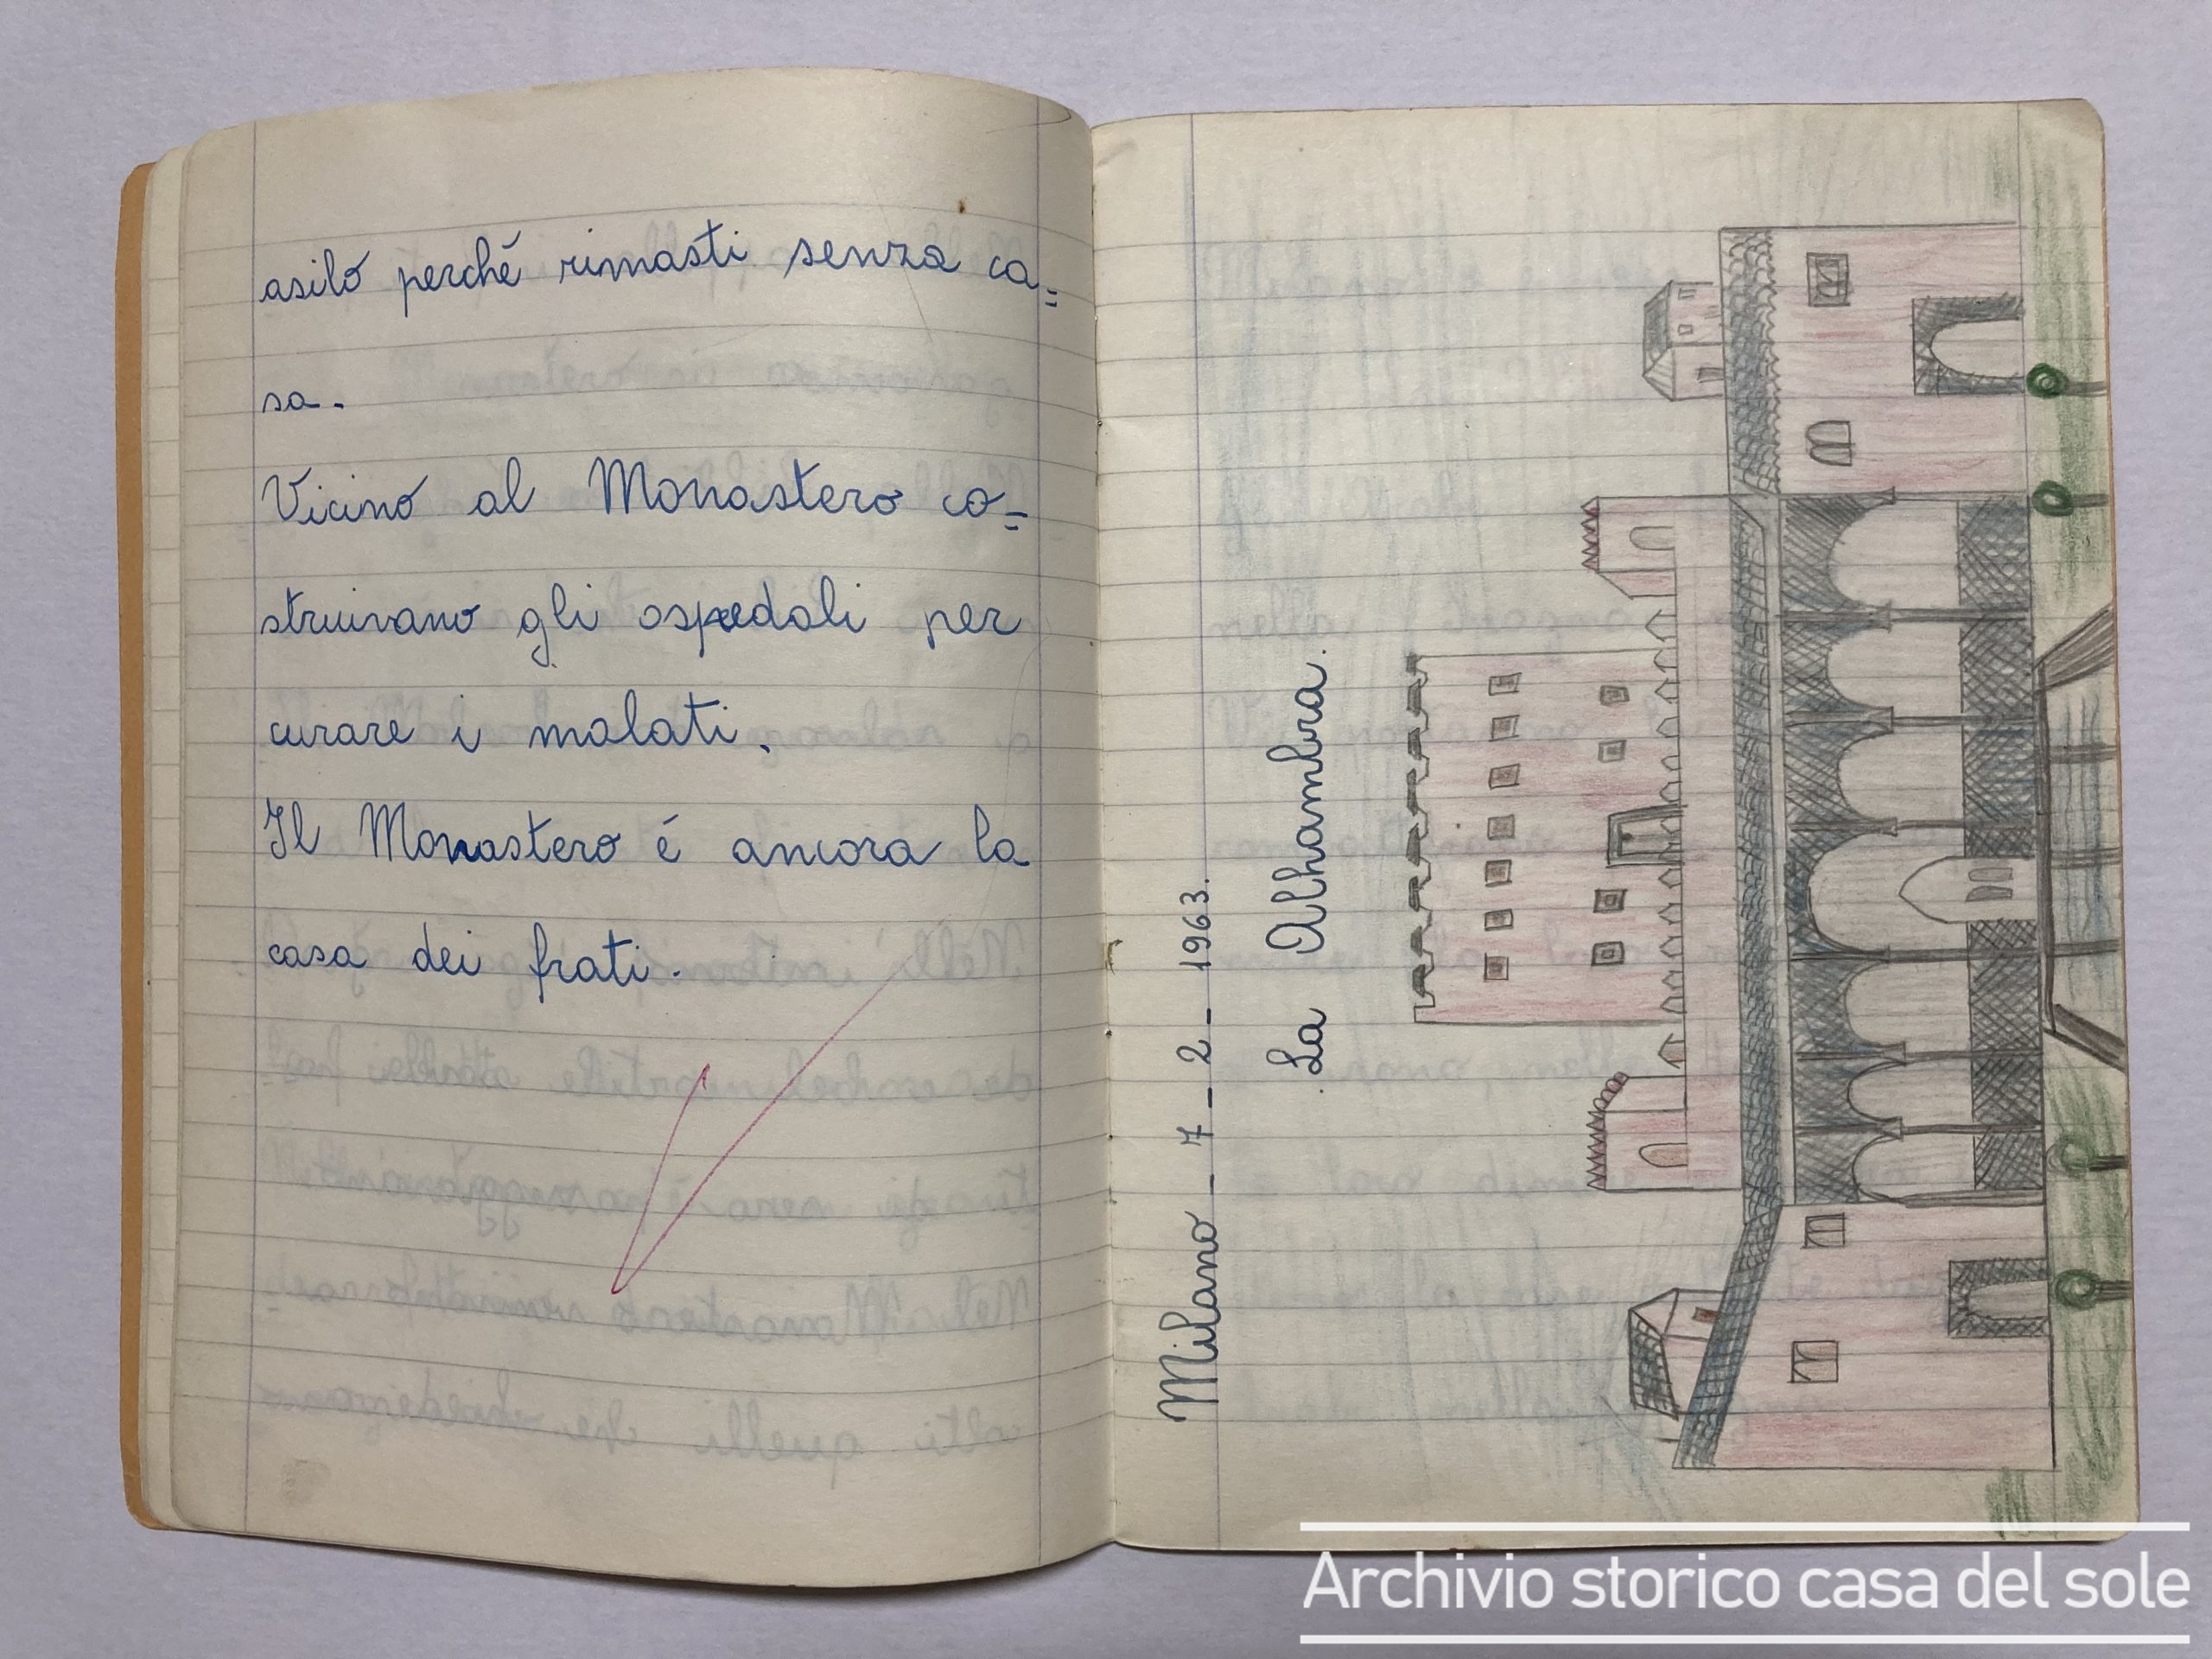 asilo perché rimasti senza ca=
sa.
Vicino al Monastero co=
struivano gli ospedali per
curare i malati.
Il Monastero é ancora la
casa dei frati.
Milano - 7 - 2 - 1963.
La Alhambra.
Archivio storico casa del sole